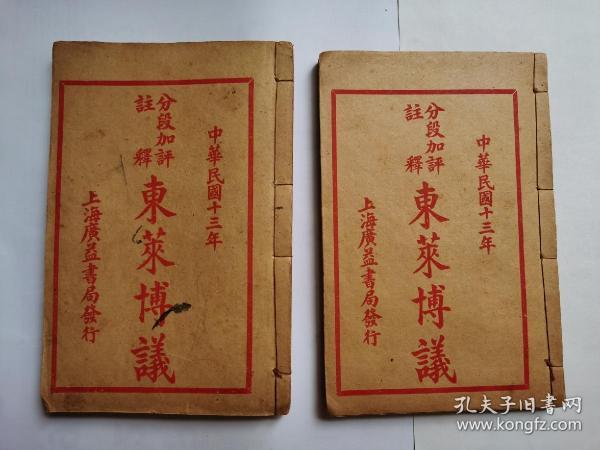 中華民國十三年
分段加評
註釋
東萊博議
上海廣益書局發行
中華民國十三年
分段加評
註釋
東萊博議
上海廣益書局發行
孔夫子旧书网
www.kongfz.com